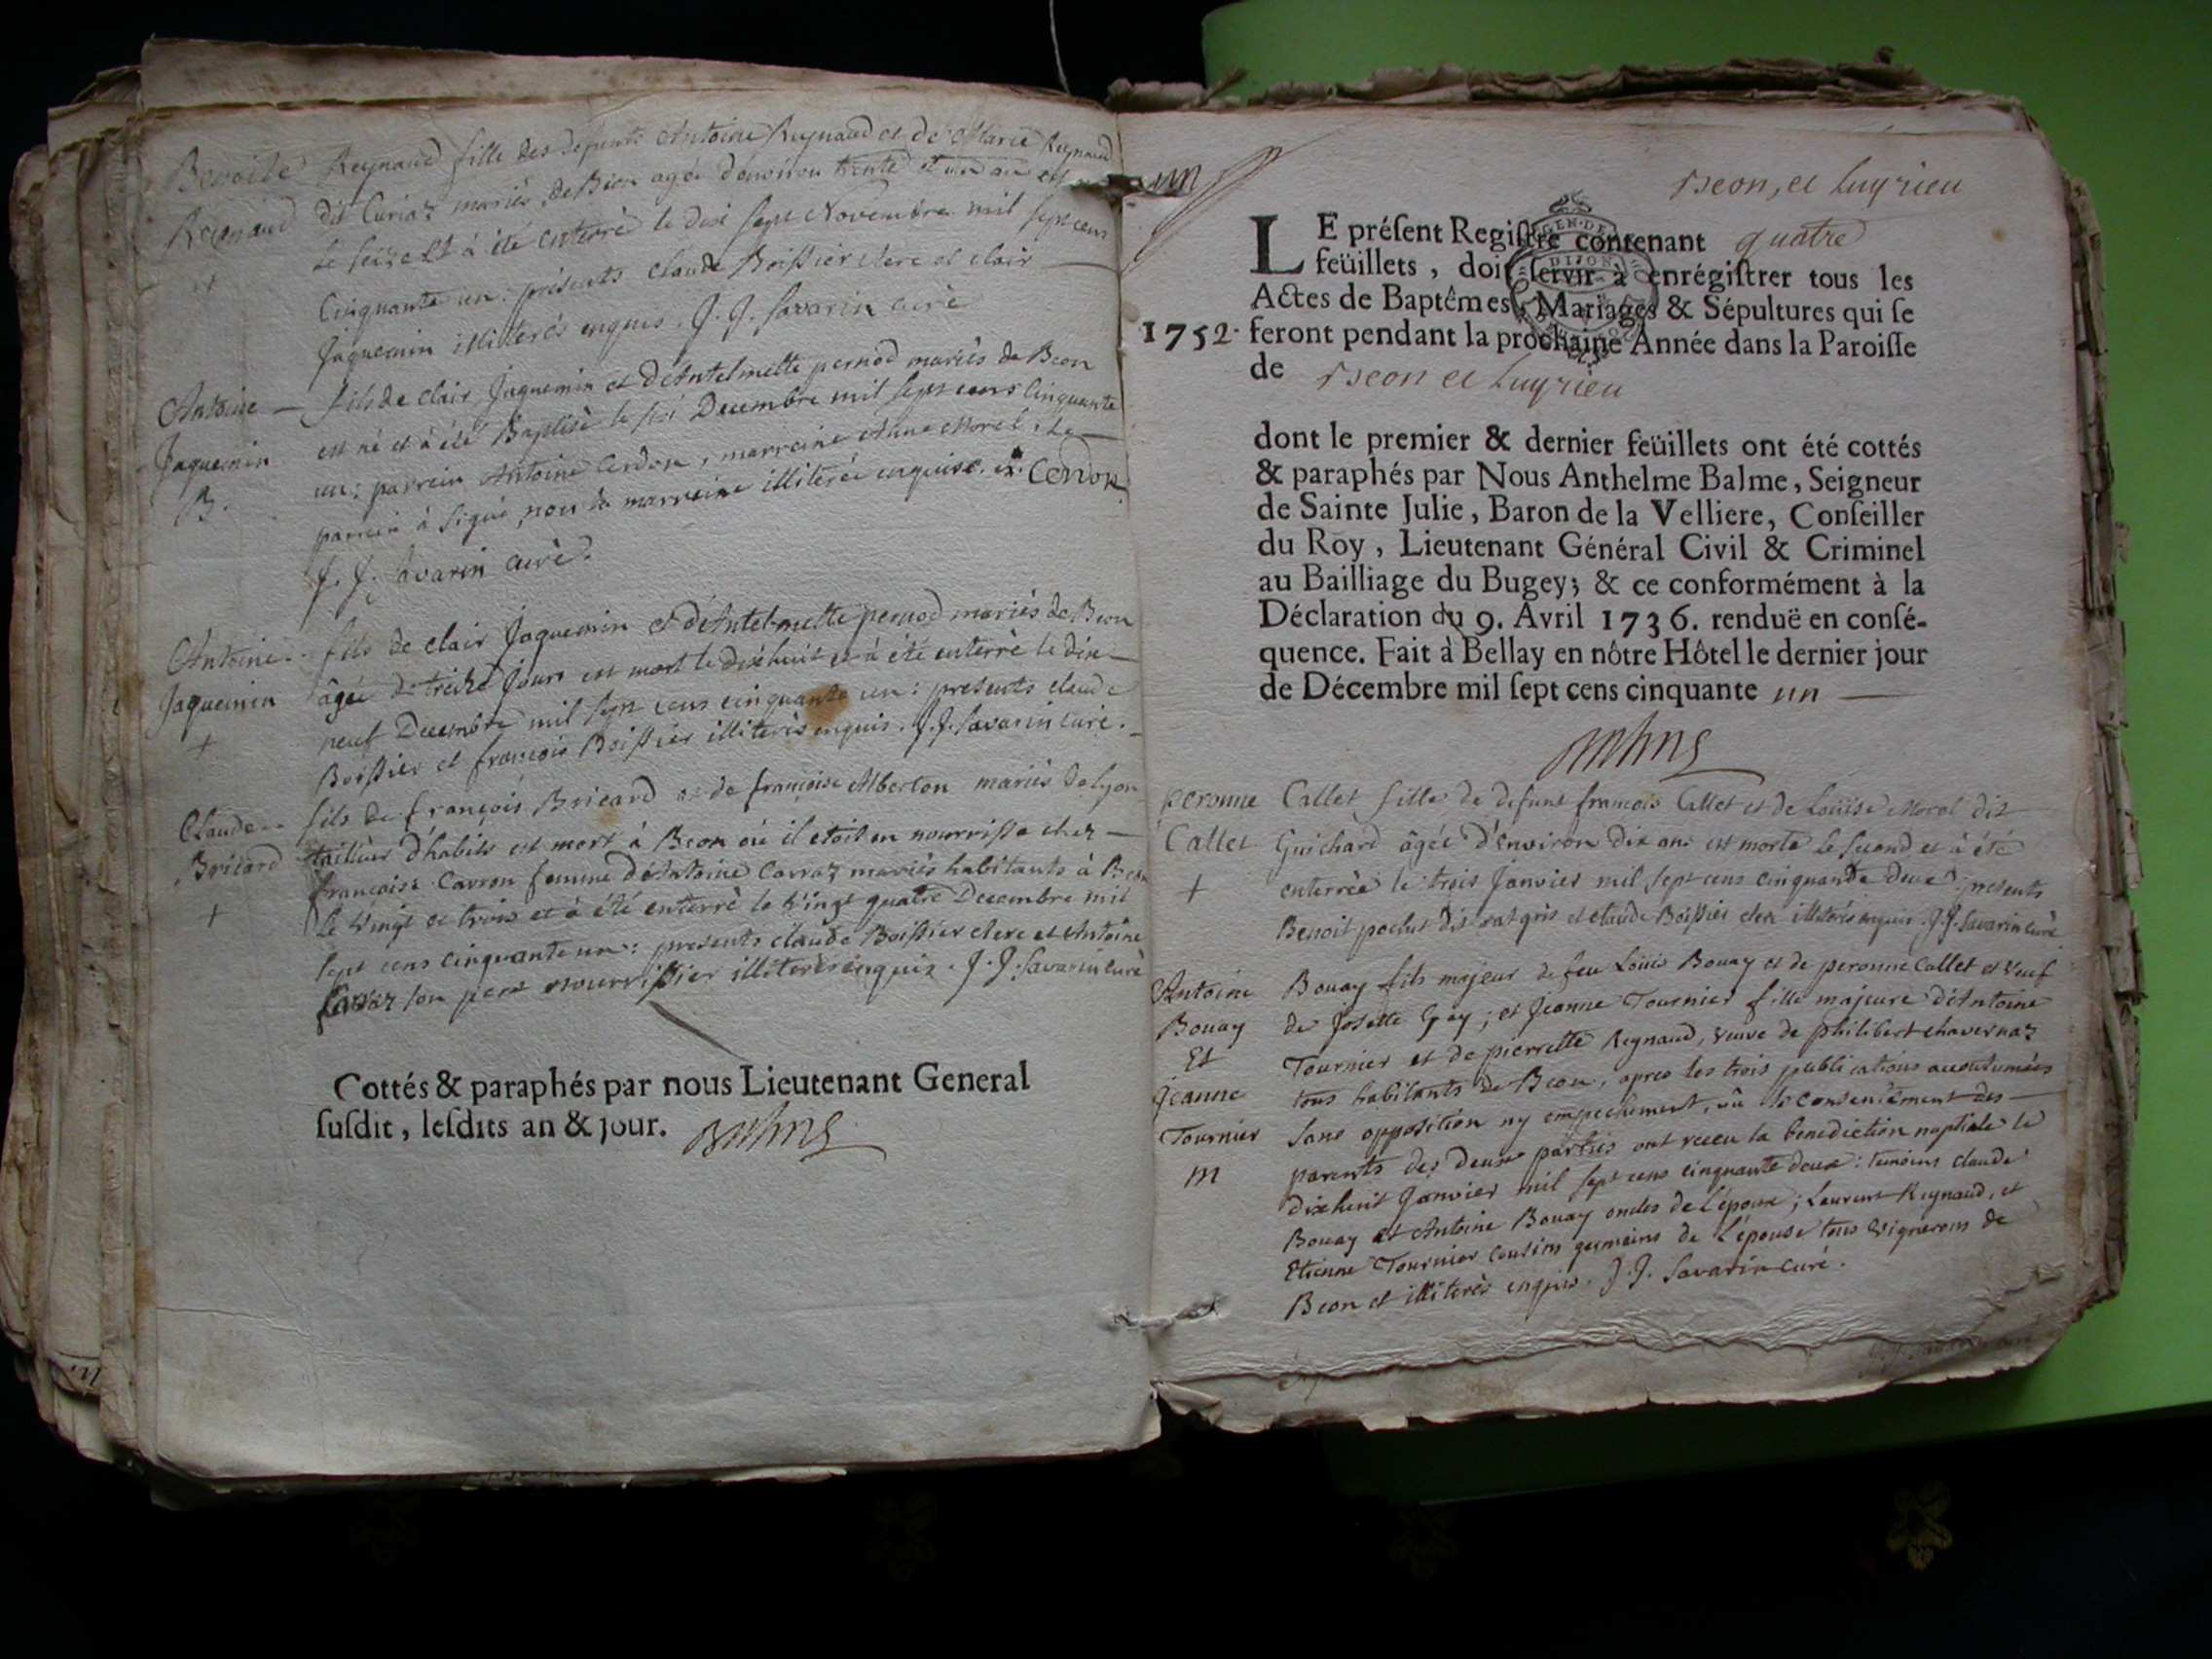 Benoite Reynaud fille des defunts Antoine Reynaud et de Marie Reynaud
Reynaud dit Curiaz mariés de Beon agée d'environ trente et un an est
+ le seize et à été enterré le dixi sept Novembre mil sept cens
Cinquante un : présents Claude Boissier clerc et clair
Jaquemin illiterés enquis. J. J. Savarin curé
Antoine — fils de clair Jaquemin et d'Antelmette pernod mariés de Beon
Jaquemin est né et à été Baptisé le six Decembre mil sept cens Cinquante
B. un : parrein Antoine Cerdon, marreine Anne Morel, Le
parrein à signé, non la marreine illiterée enquise. Cerdon
J. J. Savarin curé.
Antoine - fils de clair Jaquemin et d'Antelmette pernod mariés de Beon
Jaquemin âgée de treize Jours est mort le dixhuit et à été enterré le dix
+ neuf Decembre mil sept cens cinquante un : presents claude
Boissier et françois Boissier illiterés enquis. J. J. Savarin curé.
Claude - fils de françois Bricard et de françoise Alberton mariés de Lyon
Bricard tailleur d'habits est mort à Beon où il etoit en nourrisse chez
+ françoise Carron femme d'Antoine Carraz mariés habitants à Beon
le vingt et trois et à été enterré le vingt quatre Decembre mil
sept cens cinquante un : presents claude Boissier clerc et Antoine
Carraz son pere nourrissier illiterés enquis. J. J. Savarin curé
Cottés & paraphés par nous Lieutenant General
susdit, lesdits an & jour.
un
Beon, et Luyrieu
LE présent Registre contenant quatre
feüillets, doit servir à enrégistrer tous les
Actes de Baptêmes, Mariages & Sépultures qui se
1752. feront pendant la prochaine Année dans la Paroisse
de Beon et Luyrieu
GEN. DE DIJON
dont le premier & dernier feüillets ont été cottés
& paraphés par Nous Anthelme Balme, Seigneur
de Sainte Julie, Baron de la Velliere, Conseiller
du Roy, Lieutenant Général Civil & Criminel
au Bailliage du Bugey; & ce conformément à la
Déclaration du 9. Avril 1736. renduë en consé-
quence. Fait à Bellay en nôtre Hôtel le dernier jour
de Décembre mil sept cens cinquante un —
peronne Callet fille de defunt francois Callet et de Loüise Morel dit
Callet Guichard âgée d'environ dix ans est morte le second et à été
+ enterrée le trois Janvier mil sept cens cinquante deux : presents
Benoit pochet dit rat gris et claude Boissier clerc illiterés enquis. J. J. Savarin curé
Antoine Bouay fils majeur de feu Loüis Bouay et de peronne Callet et veuf
Bouay de Josette Gay ; et Jeanne Tournier fille majeure d'Antoine
Et Tournier et de pierrette Reynaud, veuve de philibert chavernaz
Jeanne tous habitants de Beon, apres les trois publications accoutumées
Tournier sans opposition ny empechement, vû le consentement des
m parents des deux parties ont receu la benediction nuptiale le
dixhuit Janvier mil sept cens cinquante deux : temoins claude
Bouay et Antoine Bouay oncles de l'époux ; Laurent Reynaud, et
Etienne Tournier cousins germains de l'épouse tous vignerons de
Beon et illiterés enquis. J. J. Savarin curé.